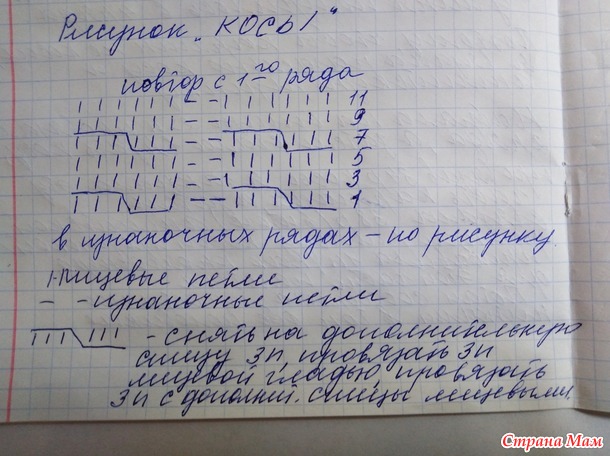 Рисунок „КОСЫ"
повтор с 1го ряда
| | | | | | - - | | | | | | 11
| | | | | | - - | | | | | | 9
| | | | | | - - | | | | | | 7
| | | | | | - - | | | | | | 5
| | | | | | - - | | | | | | 3
| | | | | | - - | | | | | | 1
в изнаночных рядах – по рисунку.
|-лицевые петли
– -изнаночные петли
||| ||| - снять на дополнительную
спицу 3п, провязать 3п
лицевой гладью, провязать
3п с дополн. спицы лицевыми.
Страна Мам